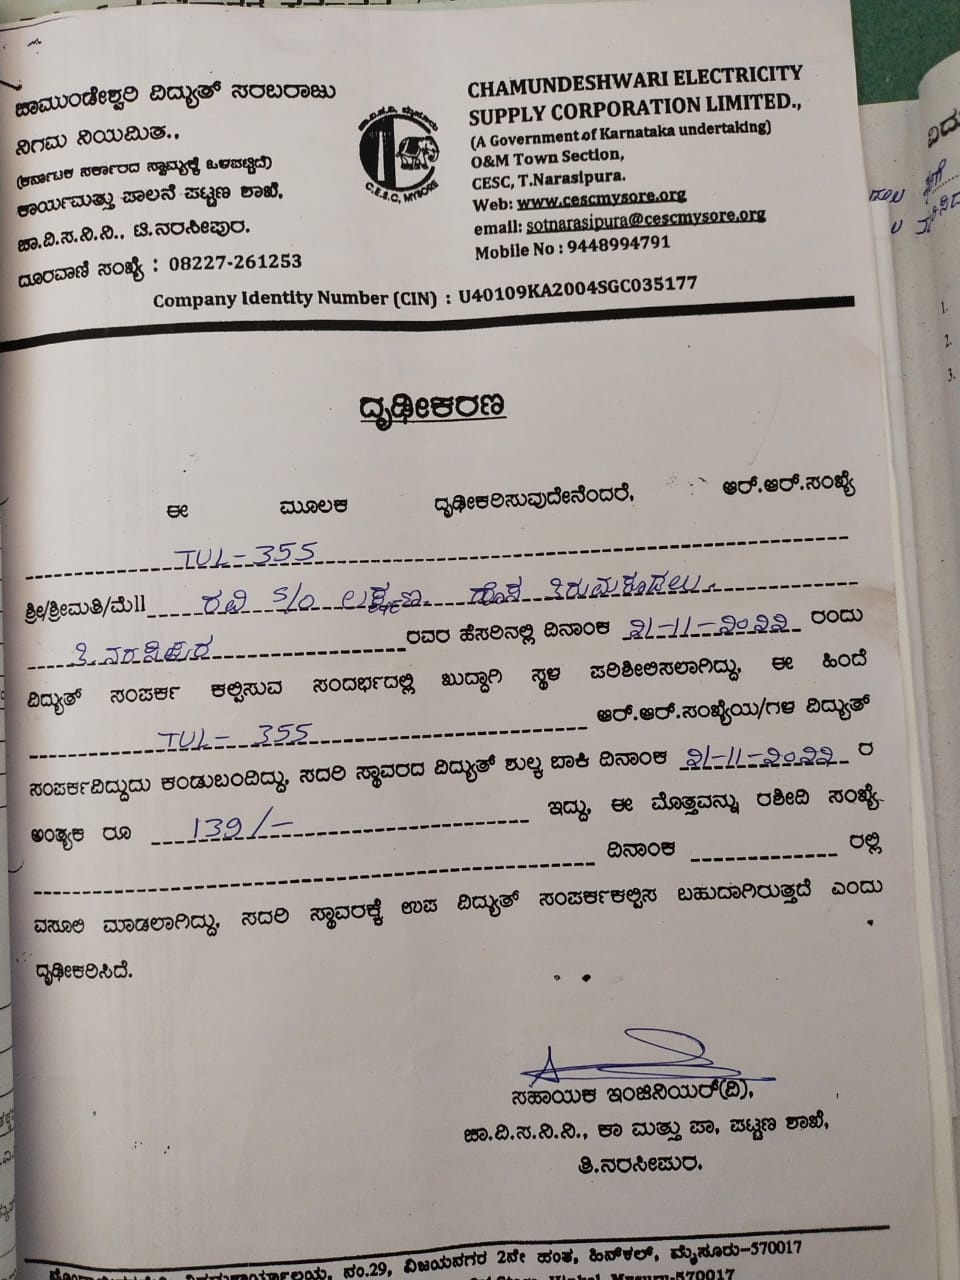 ಚಾಮುಂಡೇಶ್ವರಿ ವಿದ್ಯುತ್ ಸರಬರಾಜು
ನಿಗಮ ನಿಯಮಿತ.,
(ಕರ್ನಾಟಕ ಸರ್ಕಾರದ ಸ್ವಾಮ್ಯಕ್ಕೆ ಒಳಪಟ್ಟಿದೆ)
ಕಾರ್ಯಮತ್ತು ಪಾಲನೆ ಪಟ್ಟಣ ಶಾಖೆ,
ಚಾ.ವಿ.ಸ.ನಿ.ನಿ., ಟಿ.ನರಸೀಪುರ.
ದೂರವಾಣಿ ಸಂಖ್ಯೆ : 08227-261253
C.E.S.C, MYSORE
CHAMUNDESHWARI ELECTRICITY
SUPPLY CORPORATION LIMITED.,
(A Government of Karnataka undertaking)
O&M Town Section,
CESC, T.Narasipura.
Web: www.cescmysore.org
email: sotnarasipura@cescmysore.org
Mobile No : 9448994791
Company Identity Number (CIN) : U40109KA2004SGC035177
ದೃಢೀಕರಣ
ಈ ಮೂಲಕ ದೃಢೀಕರಿಸುವುದೇನೆಂದರೆ, ಆರ್.ಆರ್.ಸಂಖ್ಯೆ
TUL-355
ಶ್ರೀ/ಶ್ರೀಮತಿ/ಮೆ|| ರವಿ S/O ಲಕ್ಷ್ಮಣ. ಹೊಸ ತಿರುಮಕೂಡಲು.
ತಿ.ನರಸೀಪುರ ರವರ ಹೆಸರಿನಲ್ಲಿ ದಿನಾಂಕ ೨೧-11-೨೦೨೨ ರಂದು
ವಿದ್ಯುತ್ ಸಂಪರ್ಕ ಕಲ್ಪಿಸುವ ಸಂದರ್ಭದಲ್ಲಿ ಖುದ್ದಾಗಿ ಸ್ಥಳ ಪರಿಶೀಲಿಸಲಾಗಿದ್ದು, ಈ ಹಿಂದೆ
TUL- 355 ಆರ್.ಆರ್.ಸಂಖ್ಯೆಯ/ಗಳ ವಿದ್ಯುತ್
ಸಂಪರ್ಕವಿದ್ದುದು ಕಂಡುಬಂದಿದ್ದು, ಸದರಿ ಸ್ಥಾವರದ ವಿದ್ಯುತ್ ಶುಲ್ಕ ಬಾಕಿ ದಿನಾಂಕ ೨೧-11-೨೦೨೨ ರ
ಅಂತ್ಯಕ ರೂ 139/- ಇದ್ದು, ಈ ಮೊತ್ತವನ್ನು ರಶೀದಿ ಸಂಖ್ಯೆ
ದಿನಾಂಕ ರಲ್ಲಿ
ವಸೂಲಿ ಮಾಡಲಾಗಿದ್ದು, ಸದರಿ ಸ್ಥಾವರಕ್ಕೆ ಉಪ ವಿದ್ಯುತ್ ಸಂಪರ್ಕಕಲ್ಪಿಸ ಬಹುದಾಗಿರುತ್ತದೆ ಎಂದು
ದೃಢೀಕರಿಸಿದೆ.
ಸಹಾಯಕ ಇಂಜಿನಿಯರ್(ವಿ),
ಚಾ.ವಿ.ಸ.ನಿ.ನಿ., ಕಾ ಮತ್ತು ಪಾ, ಪಟ್ಟಣ ಶಾಖೆ,
ತಿ.ನರಸೀಪುರ.
ನಂ.29, ವಿಜಯನಗರ 2ನೇ ಹಂತ, ಹಿನ್‌ಕಲ್, ಮೈಸೂರು-570017
1.
2.
3.